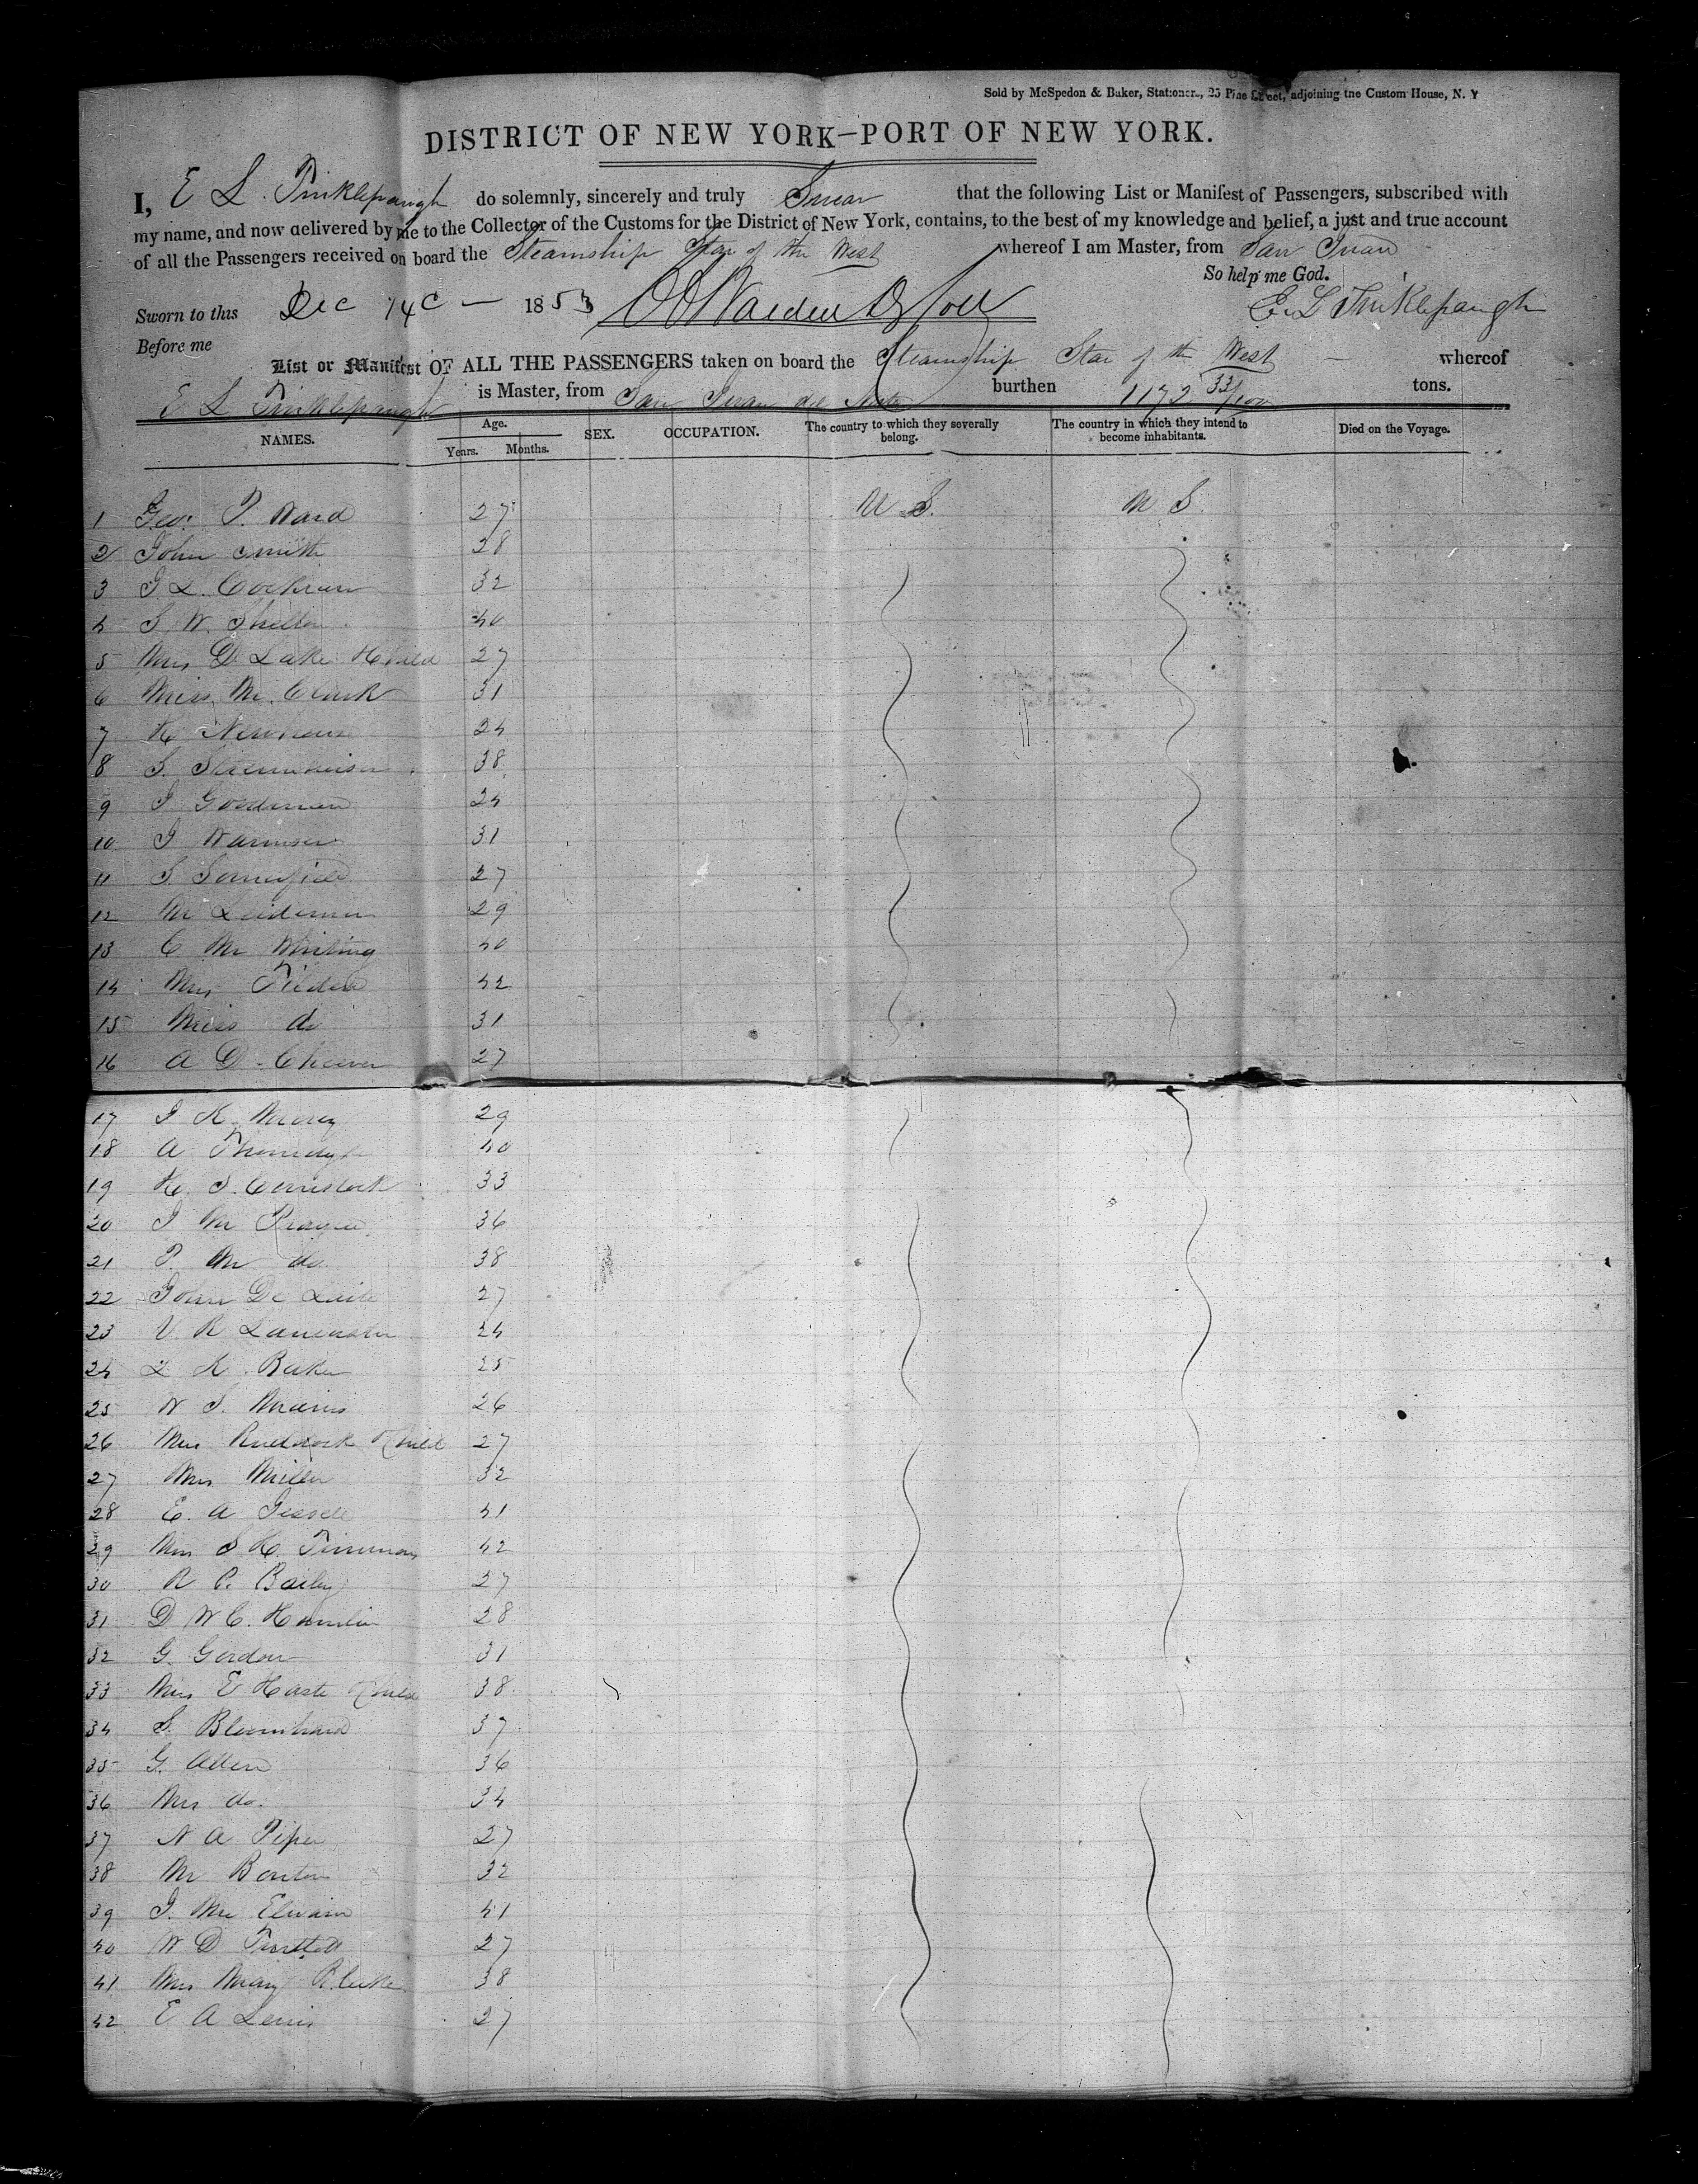 Sold by McSpedon & Baker, Stationers, 25 Pine Street, adjoining the Custom House, N. Y
DISTRICT OF NEW YORK—PORT OF NEW YORK.
I, E L. Tinklepaugh do solemnly, sincerely and truly Swear that the following List or Manifest of Passengers, subscribed with
my name, and now delivered by me to the Collector of the Customs for the District of New York, contains, to the best of my knowledge and belief, a just and true account
of all the Passengers received on board the Steamship Star of the West whereof I am Master, from San Juan
So help me God.
Sworn to this Dec 14 1853 E. L Tinklepaugh
Before me
List or Manifest OF ALL THE PASSENGERS taken on board the Steamship Star of the West whereof
E L Tinklepaugh is Master, from San Juan del Norte burthen 1172 33/100 tons.
NAMES. Age. Years. Months. SEX. OCCUPATION. The country to which they severally belong. The country in which they intend to become inhabitants. Died on the Voyage.
1 Geo. P. Ward 27 U S. U S.
2 John Smith 28
3 J L. Cochran 32
4 S. W. 40
5 Mrs D Lake & Child 27
6 Miss M. Clark 31
7 H 24
8 S. 38
9 J Goodman 24
10 J 31
11 S. 27
12 M 29
13 C M Whiting 40
14 Mrs Tilden 42
15 Miss do 31
16 A D. Cheever 27
17 J K 29
18 A Thorndyke 40
19 H. S. Comstock 33
20 J M 36
21 P. M do 38
22 John De 27
23 V R Lancaster 24
24 L K. Baker 25
25 W S. 26
26 Mrs Ruddock & Child 27
27 Mrs Miller 32
28 E. A 41
29 Mrs S H. 42
30 R P. Bailey 27
31 D W C. Hamlin 28
32 G. Gordon 31
33 Mrs E Haste & Child 38
34 S. 37
35 G. Allen 36
36 Mrs do. 34
37 N A Piper 27
38 M 32
39 J. Mc Elwain 41
40 W D 27
41 Mrs Mary 38
42 E A Lewis 27